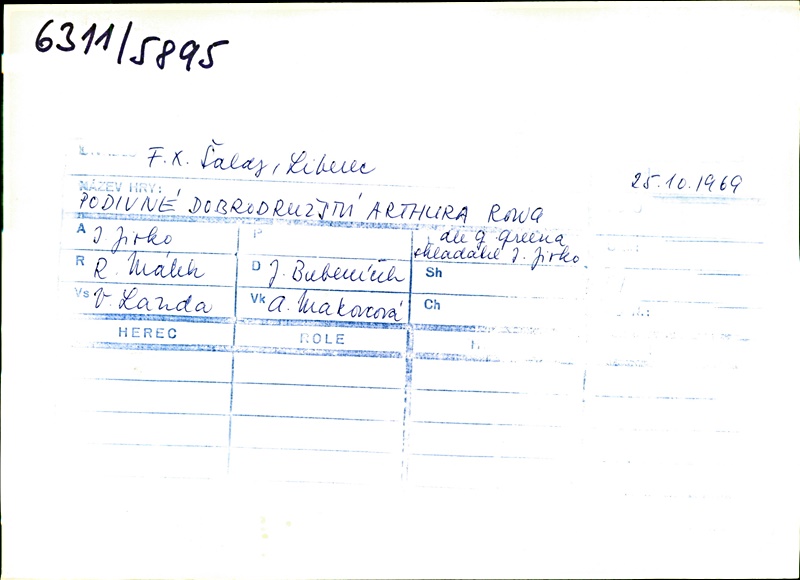 6311/5895
F.X. Šaldy, Liberec
25.10.1969
NÁZEV HRY:
PODIVNÉ DOBRODRUZSTVÍ ARTHURA ROWA
A I. Jirko P dle g. Greena
skladatel I. Jirko
R R. Málek D J. Bubeníček Sh
Vs V. Landa Vk A. Makovcová Ch
HEREC ROLE